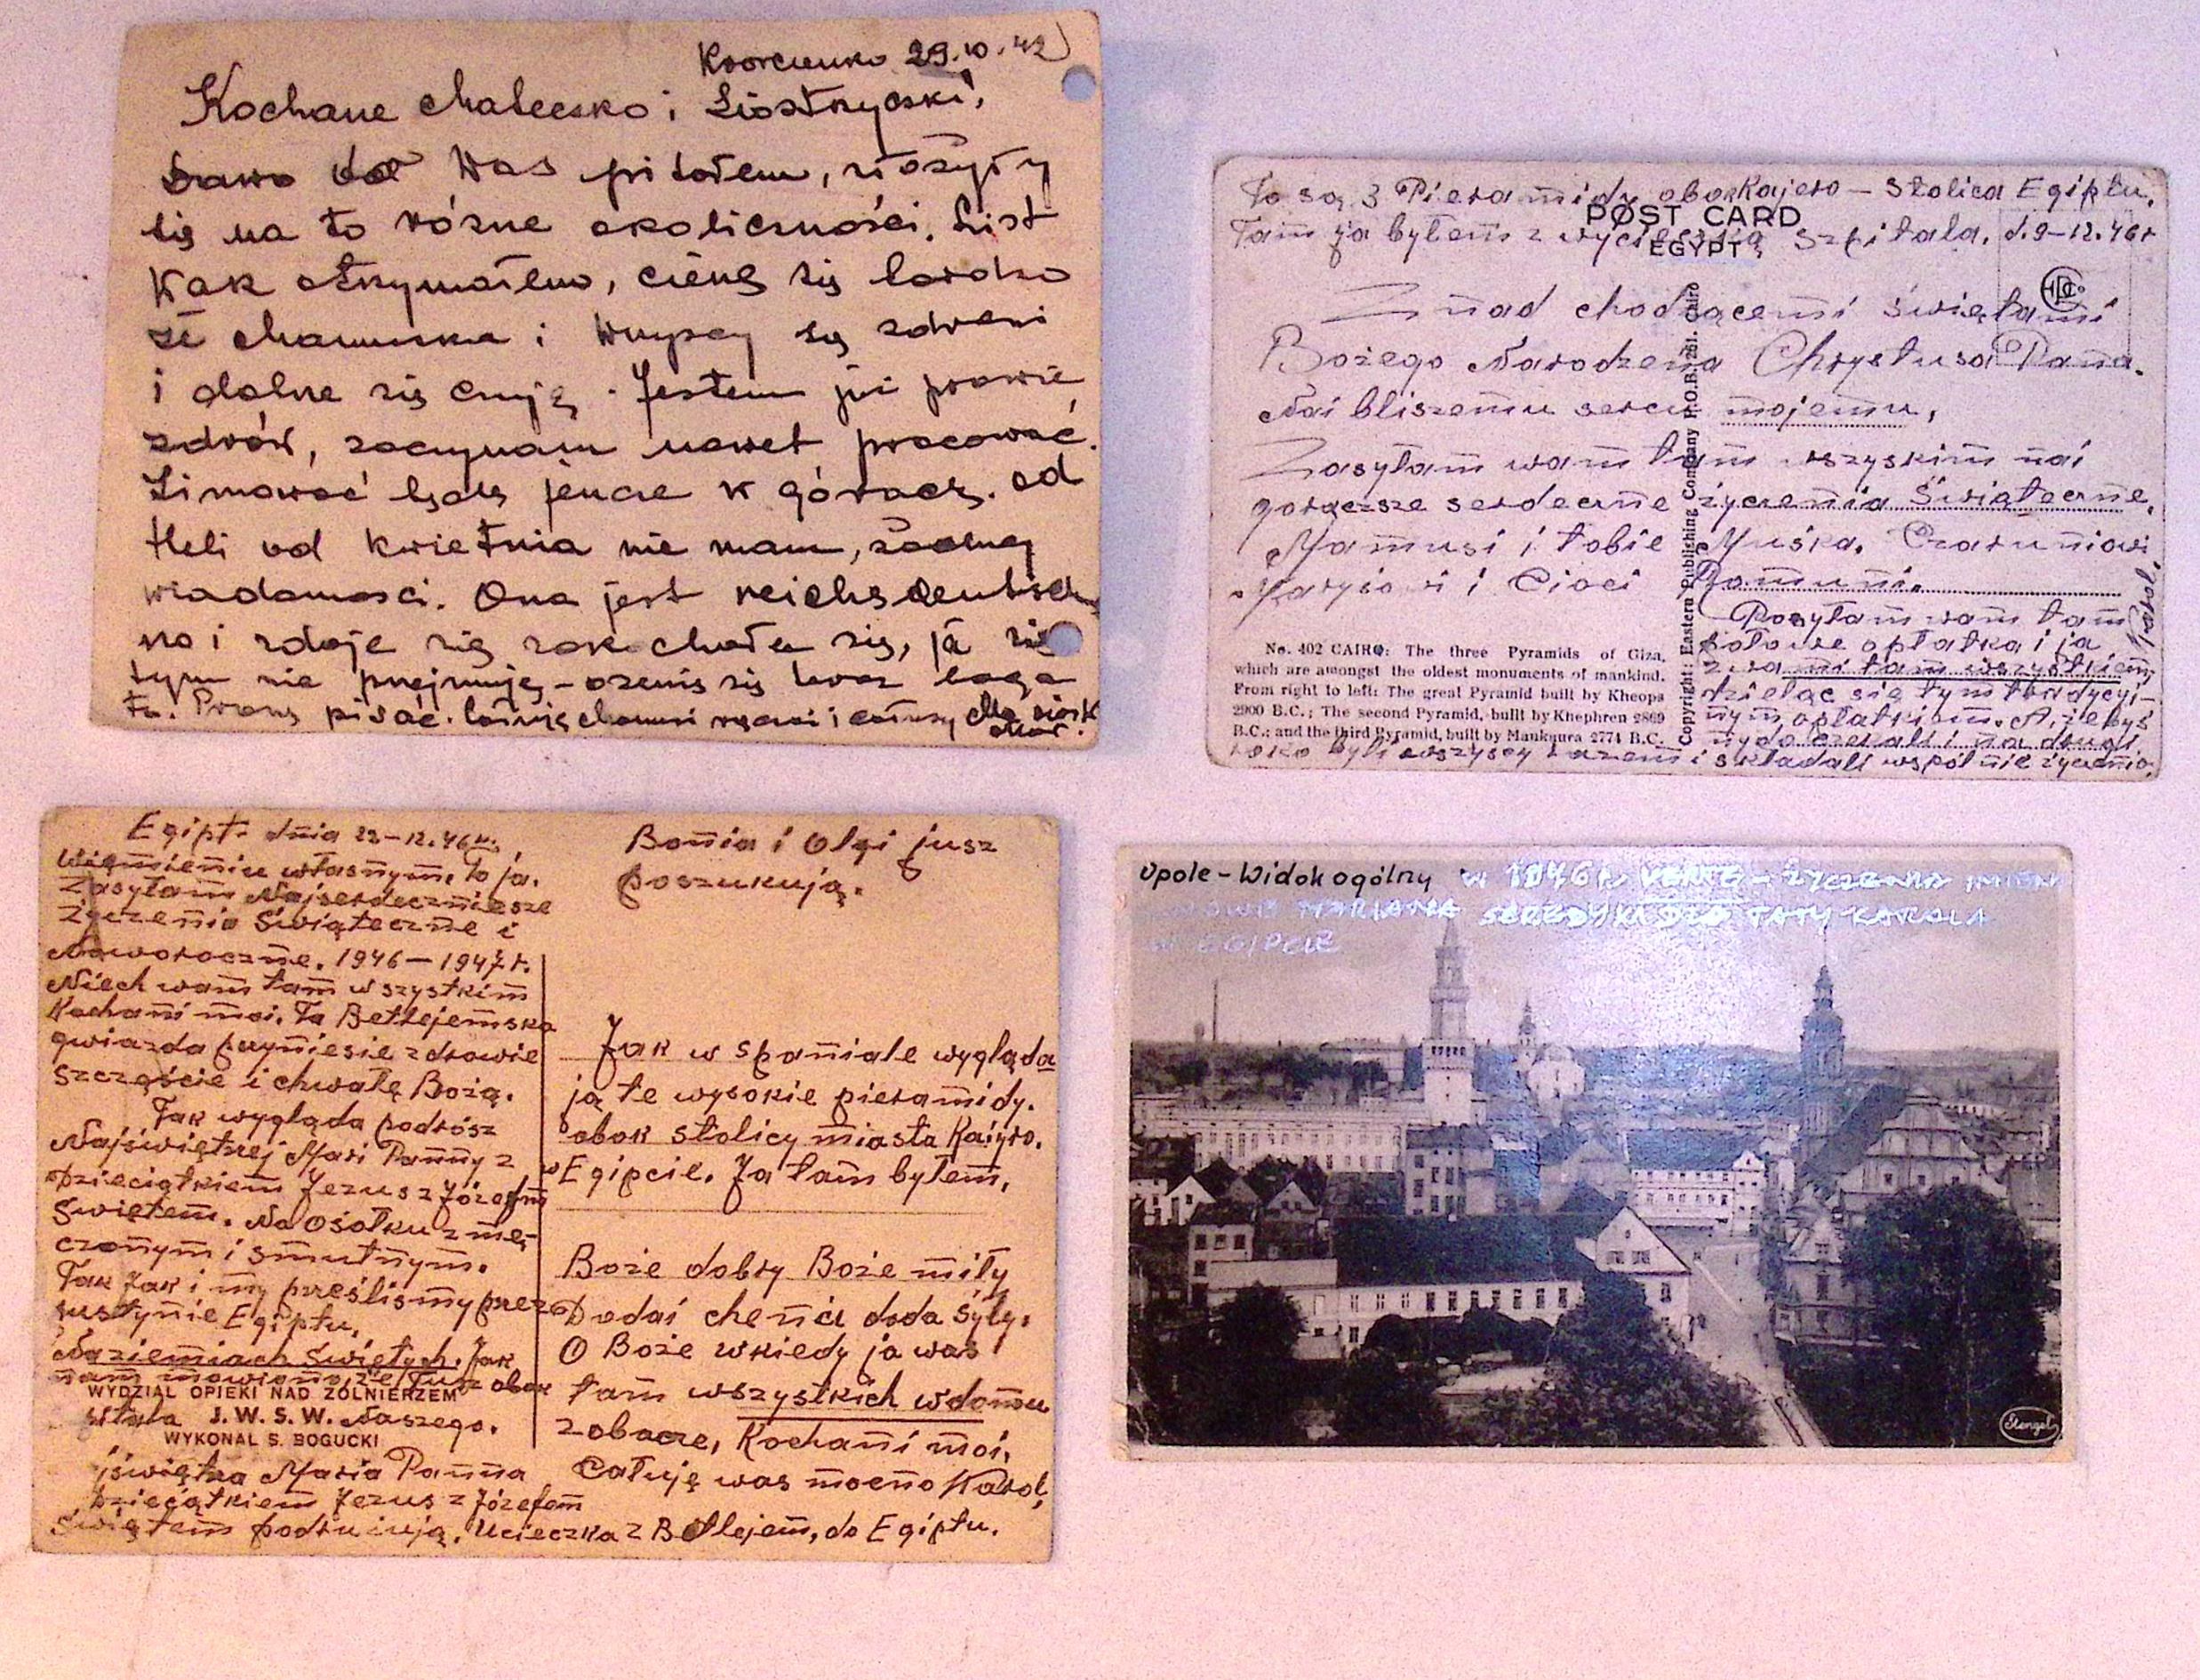 29.10.42
Kochane Mateczko i Siostrzyczki!
Dawno do Was pisałem, złożyły
się na to różne okoliczności. List
Wasz otrzymałem, cieszę się bardzo
że Mamusia i wszyscy są zdrowi
i dobrze się czują. Jestem już prawie
zdrów, zaczynam nawet pracować.
Zimować będę jeszcze w górach. Od
Heli od kwietnia nie mam żadnej
wiadomości. Ona jest reichsdeutsch
no i zdaje się zakochała się, ja się
tym nie przejmuję - ożenię się
Proszę pisać.
To są 3 Pieramidy obok Kajero - Stolica Egiptu.
Tam ja byłem z wycieczką Szpitala. d. 9-12.46r
POST CARD
EGYPT
Z nad chodzącemi świętami
Bożego Narodzenia Chrystusa Pana.
Nai bliszemu sercu mojemu,
Zasyłam wam tam wszyskim nai
gorączsze serdeczne życzenia Świąteczne.
Mamusi i tobie Muśka. Czaruniowi
Marysiowi i Cioci Pamuni.
Posyłam wam tam
połowe opłatka i ja
z wami tam wszystkiem
dzieląc się tym tordycyj-
nym opłatkiem. A, żebyś
my do czekali i na drugi
roko byli wszyscy razem i składali wspólnie życzenia.
Karol.
No. 402 CAIRO: The three Pyramids of Giza,
which are amongst the oldest monuments of mankind.
From right to left: The great Pyramid built by Kheops
2900 B.C.; The second Pyramid, built by Khephren 2869
B.C.; and the third Pyramid, built by Mankaura 2774 B.C.
Copyright: Eastern Publishing Company P.O.B. 261. Cairo
Egipt. dnia 22-12.46r.
Wiemieniu własnym. to ja.
Zasyłam Najserdeczniesze
Życzenia Świąteczne i
Noworoczne. 1946-1947r.
Niech wam tam wszystkim
Kochani moi. Ta Betlejemska
gwiazda przyniesie zdrowie
szczęście i chwałę Bożą.
Tak wygląda podrósz
Najświętrzej Mari Panny z
Dzieciątkiem Jezus z Józefem
Świętem. Na Osołku z mę-
czonym i smutnym.
Tak Jak i my prześliśmy przez
pustynie Egiptu,
Na ziemiach Świętych. Jak
nam mówiono, że Tusz obok
WYDZIAŁ OPIEKI NAD ŻOŁNIERZEM
szpitala J. W. S. W. Naszego.
WYKONAŁ S. BOGUCKI
jświętrza Maria Panna
Dzieciątkiem Jezus z Józefem
Świętem podruzują. Ucieczka z Betlejem, do Egiptu.
Bonia i Olgi jusz
poszukują.
Jak w spaniale wygląda
ją te wysokie pieramidy.
obok stolicy miasta Kaiyro.
w Egipcie. Ja tam byłem.
Boże dobry Boże miły
Dodai chenci doda syły.
O Boże wkiedy ja was
tam wszystkich wdomu
zobacze, Kochani moi,
Całuję was mocno Karol,
Opole - Widok ogólny w 1946 r. VERTE - ŻYCZENIA IMIEN
MARIANA DLO TATY KAROLA
W EGIPCIE
Stengel